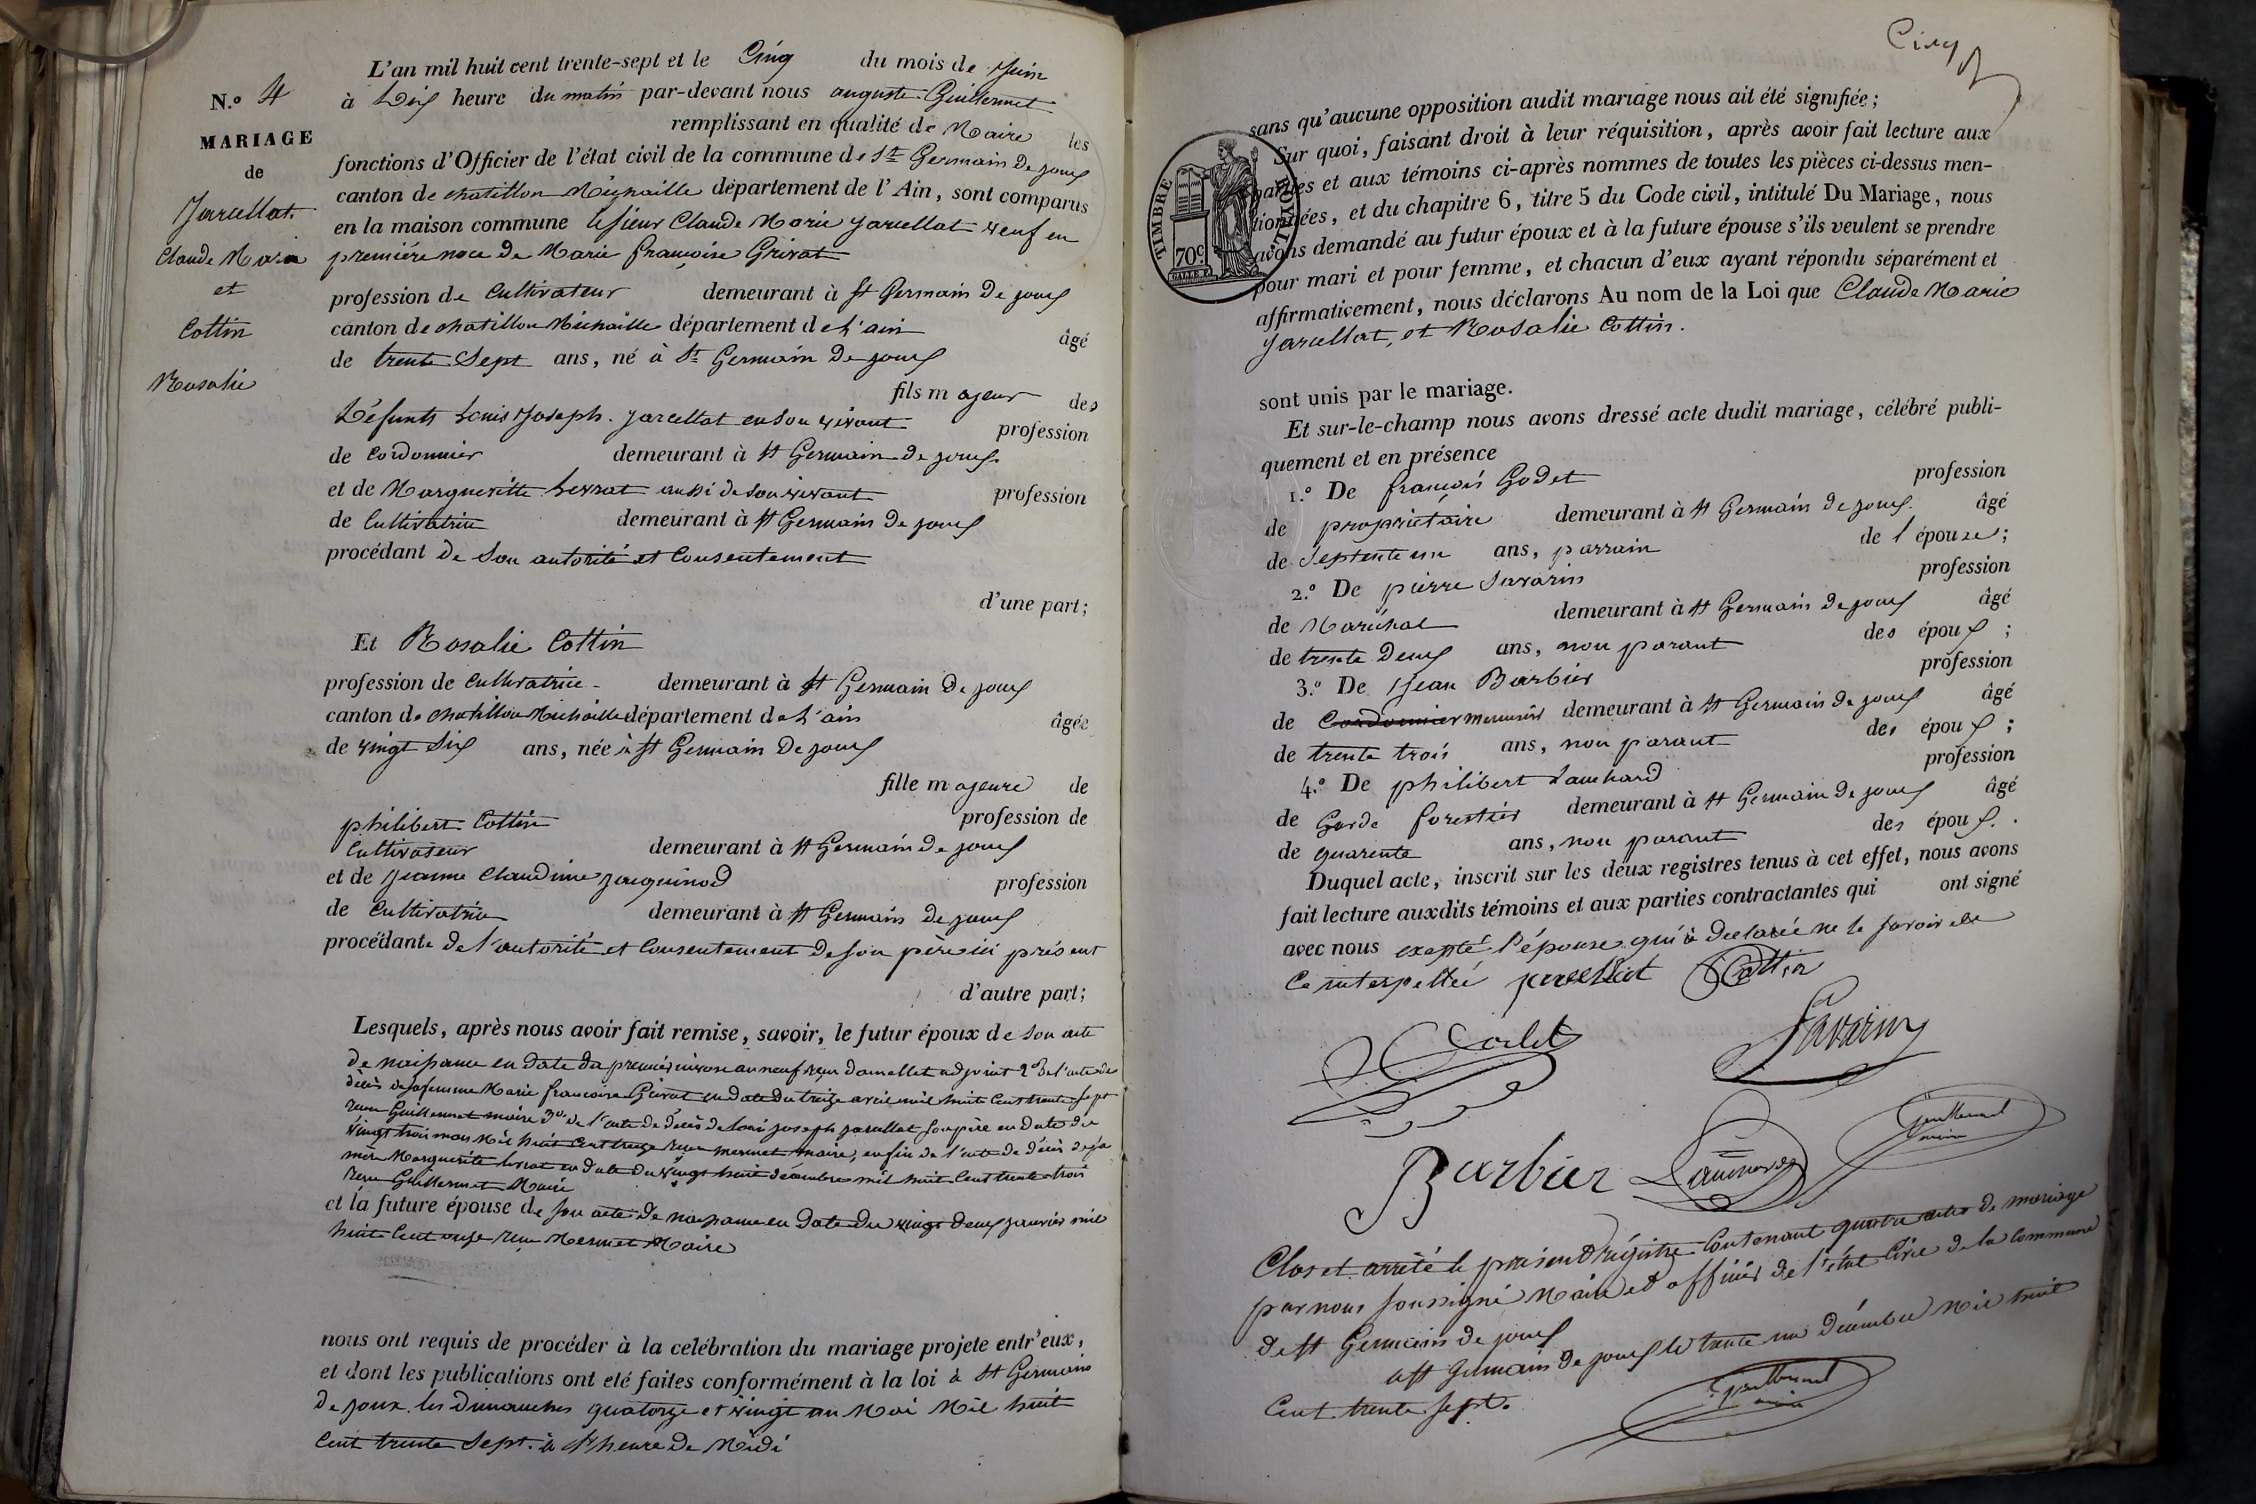 L'an mil huit cent trente-sept et le Cinq du mois de Juin
N.º 4
à Dix heure du matin par-devant nous auguste Guillermet
remplissant en qualité de Maire les
MARIAGE
fonctions d'Officier de l'état civil de la commune de St Germain De joux
de
canton de chatillon Michaille département de l'Ain, sont comparus
Jarcellat
en la maison commune le sieur Claude Marie jarcellat veuf en
Claude Marie
première noce de Marie françoise Grivat
et
profession de Cultivateur demeurant à st Germain De joux
Cottin
canton de chatillon Michaille département de l'ain âgé
Rosalie
de trente Sept ans, né à St Germain De joux
fils majeur des
Défunts Louis Joseph. jarcellat en son vivant profession
de Cordonnier demeurant à st Germain de joux.
et de Margueritte Levrat aussi de son vivant profession
de Cultivatrice demeurant à st Germain de joux
procédant De Son autorité et Consentement
d'une part;
Et Rosalie Cottin
profession de Cultivatrice - demeurant à st Germain De joux
canton de chatillon Michaille département de l'ain âgée
de vingt Six ans, née à st Germain De joux
fille majeure de
philibert Cottin profession de
Cultivateur demeurant à st Germain de joux
et de jeanne Claudine jacquinod profession
de Cultivatrice demeurant à st Germain de joux
procédante de l'autorité et Consentement De son père ici présent
d'autre part;
Lesquels, après nous avoir fait remise, savoir, le futur époux de son acte
de naissance en Date du premier nivose an neuf reçu Damollet adjoint 2º De l'acte de
décès de sa femme Marie francoise Grivat en date du treize avril mil huit Cent trente Sept
reçu Guillermet maire 3º de l'acte de décès de Louis joseph jarcellat son père en date du
vingt trois mars Mil huit Cent treize reçu mermet maire, enfin de l'acte de décès de sa
mère Marguerite levrat en date du vingt huit décembre mil huit Cent trente trois
reçu Guillermet Maire
et la future épouse de son acte de naissance en Date du vingt deux janvier mil
huit Cent onze reçu Mermet Maire
nous ont requis de procéder à la celébration du mariage projete entr'eux,
et dont les publications ont eté faites conformément à la loi à St Germain
De joux. les Dimanches quatorze et vingt un Mai Mil huit
Cent trente Sept. à l'heure De Midi
Cinq
sans qu'aucune opposition audit mariage nous ait été signifiée;
Sur quoi, faisant droit à leur réquisition, après avoir fait lecture aux
parties et aux témoins ci-après nommes de toutes les pièces ci-dessus men-
tionnées, et du chapitre 6, titre 5 du Code civil, intitulé Du Mariage, nous
avons demandé au futur époux et à la future épouse s'ils veulent se prendre
pour mari et pour femme, et chacun d'eux ayant répondu séparément et
affirmativement, nous déclarons Au nom de la Loi que Claude Marie
jarcellat, et Rosalie Cottin.
TIMBRE ROYAL
70 c.
sont unis par le mariage.
Et sur-le-champ nous avons dressé acte dudit mariage, célébré publi-
quement et en présence
1.º De françois Godet profession
de propriétaire demeurant à st Germain de joux. âgé
de Septente un ans, parrain de l'épouse;
2.º De pierre Savarin profession
de Maréchal demeurant à st Germain De joux âgé
de trente Deux ans, non parant des époux;
3.º De Jean Barbier profession
de Cordonnier menuisier demeurant à st Germain de joux âgé
de trente trois ans, non parant des époux;
4.º De philibert Lauchard profession
de Garde forestier demeurant à st Germain de joux âgé
de quarente ans, non parant des époux.
Duquel acte, inscrit sur les deux registres tenus à cet effet, nous avons
fait lecture auxdits témoins et aux parties contractantes qui ont signé
avec nous excepté l'épouse qui à declarée ne le savoir de
Ce interpellée jarcellat Cottin
Godet Savarin
Barbier Lauchard Guillermet maire
Clos et arrêté le présent régistre Contenant quatre actes de mariage
par nous soussigné Maire et officier de l'état Civil de la Commune
De st Germain de joux
a st Germain De joux le trente un Décembre Mil huit
Cent trente sept.
Guillermet maire